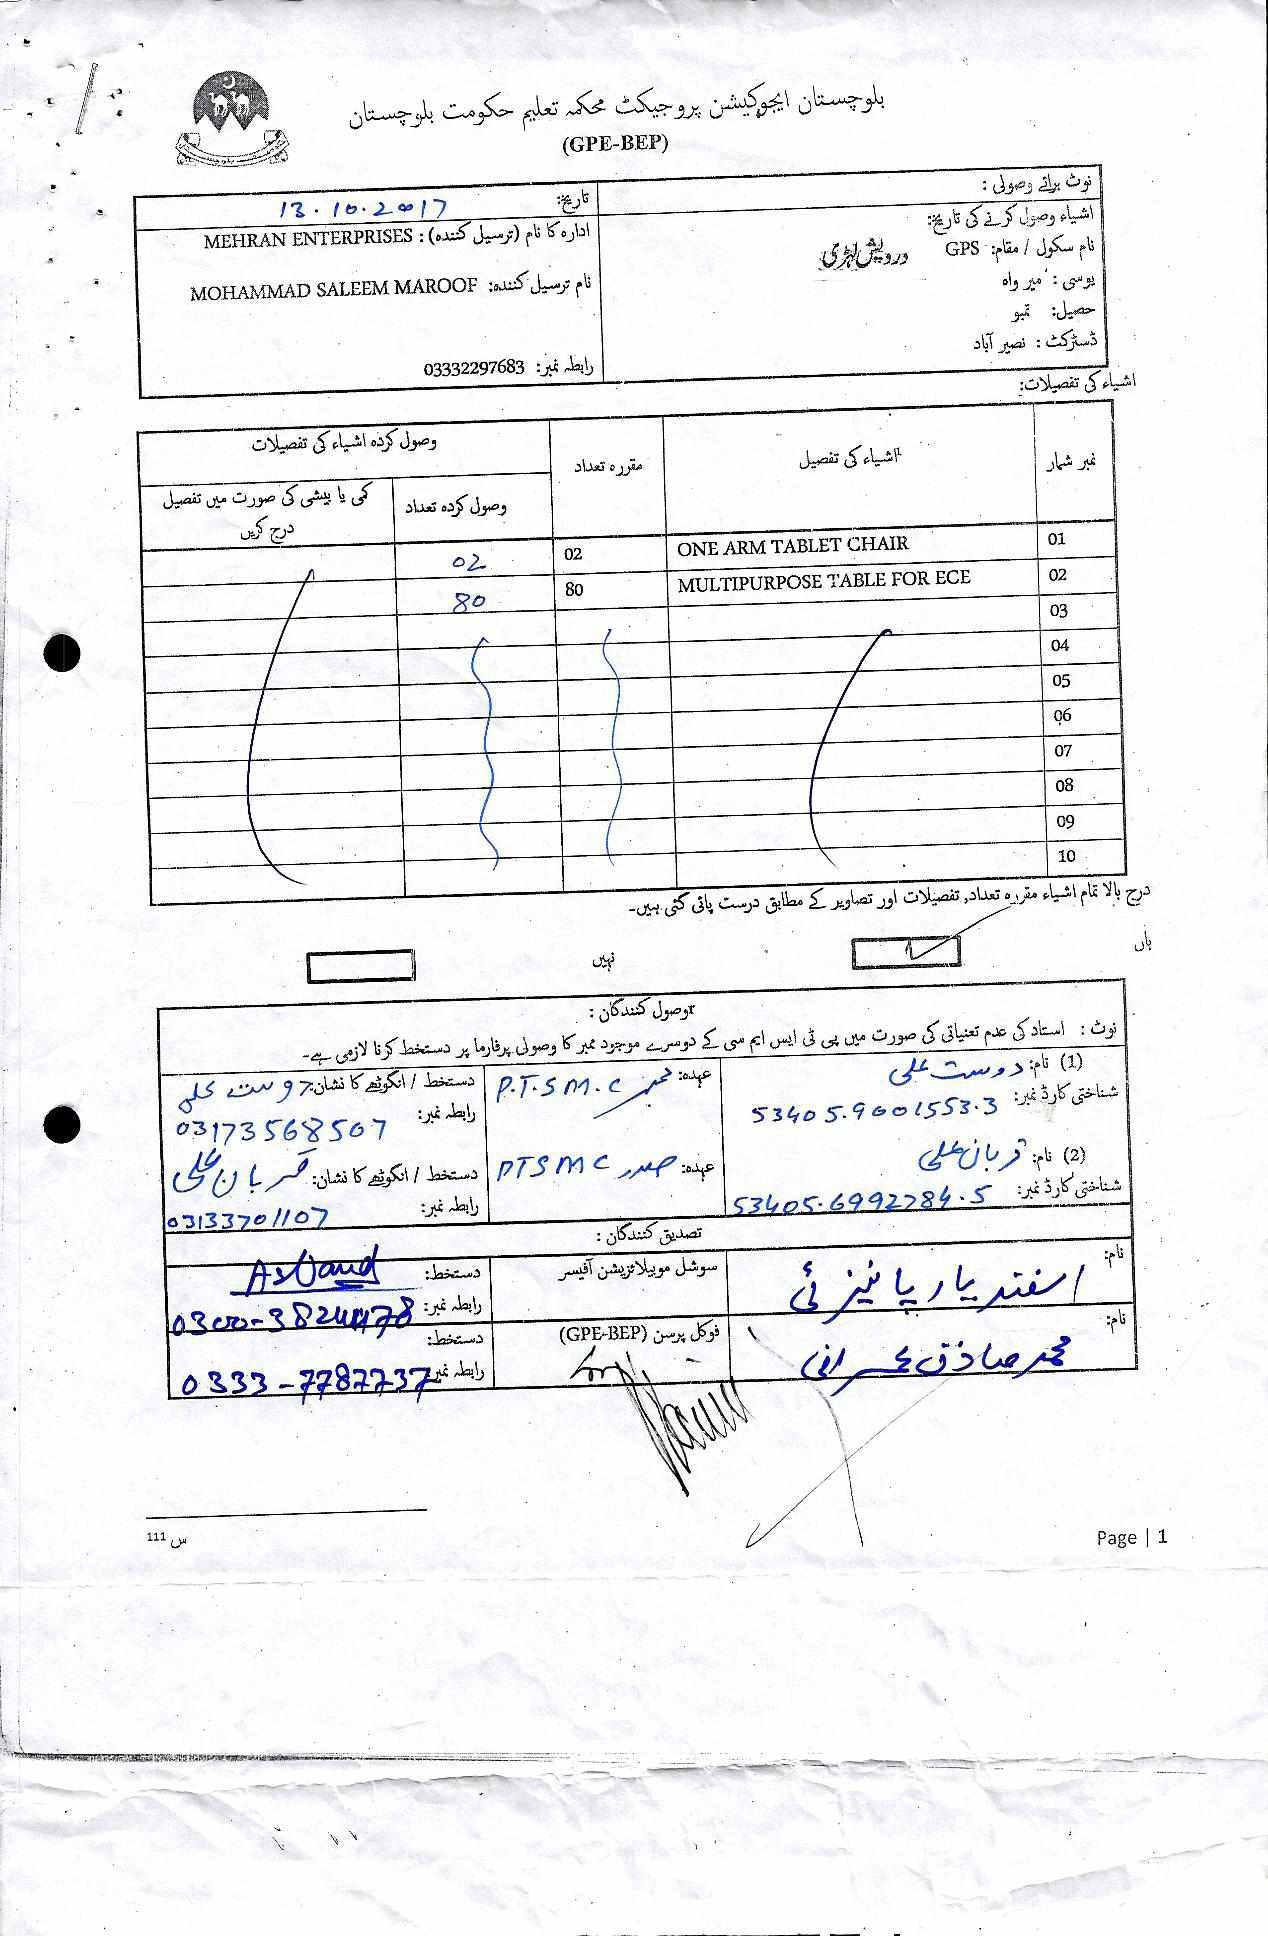 بلوچستان ایجوکیشن پروجیکٹ محکمہ تعلیم حکومت بلوچستان
(GPE-BEP)
نوٹ برائے وصولی :
اشیاء وصول کرنے کی تاریخ:
نام سکول / مقام: GPS درویش لہڑی
یوسی : میر واہ
حصیل: تمبو
ڈسٹرکٹ : نصیر آباد
تاریخ: 13.10.2017
ادارہ کا نام (ترسیل کنندہ) : MEHRAN ENTERPRISES
نام ترسیل کنندہ: MOHAMMAD SALEEM MAROOF
رابطہ نمبر: 03332297683
اشیاء کی تفصیلات:
نمبر شمار اشیاء کی تفصیل مقررہ تعداد وصول کردہ اشیاء کی تفصیلات
وصول کردہ تعداد کمی یا بیشی کی صورت میں تفصیل
درج کریں
01 ONE ARM TABLET CHAIR 02 02
02 MULTIPURPOSE TABLE FOR ECE 80 80
03
04
05
06
07
08
09
10
درج بالا تمام اشیاء مقررہ تعداد, تفصیلات اور تصاویر کے مطابق درست پائی گئی ہیں۔
ہاں نہیں
وصول کنندگان :
نوٹ : استاد کی عدم تعنیاتی کی صورت میں پی ٹی ایس ایم سی کے دوسرے موجود ممبر کا وصولی پرفارما پر دستخط کرنا لازمی ہے۔
(1) نام: دوست علی عہدہ: ممبر P.T.S.M.C دستخط / انگوٹھے کا نشان: دوست علی
شناختی کارڈ نمبر: 53405.9001553.3 رابطہ نمبر: 03173568507
(2) نام: قربان علی عہدہ: صدر PTSMC دستخط / انگوٹھے کا نشان: قربان علی
شناختی کارڈ نمبر: 53405.6992784.5 رابطہ نمبر: 03133701107
تصدیق کنندگان :
نام: اسفند یار پانیزئی سوشل موبیلائزیشن آفیسر دستخط:
رابطہ نمبر:
نام: محمد صادق عمرانی فوکل پرسن (GPE-BEP) دستخط:
رابطہ نمبر: 0333-7787737
س 111
Page | 1